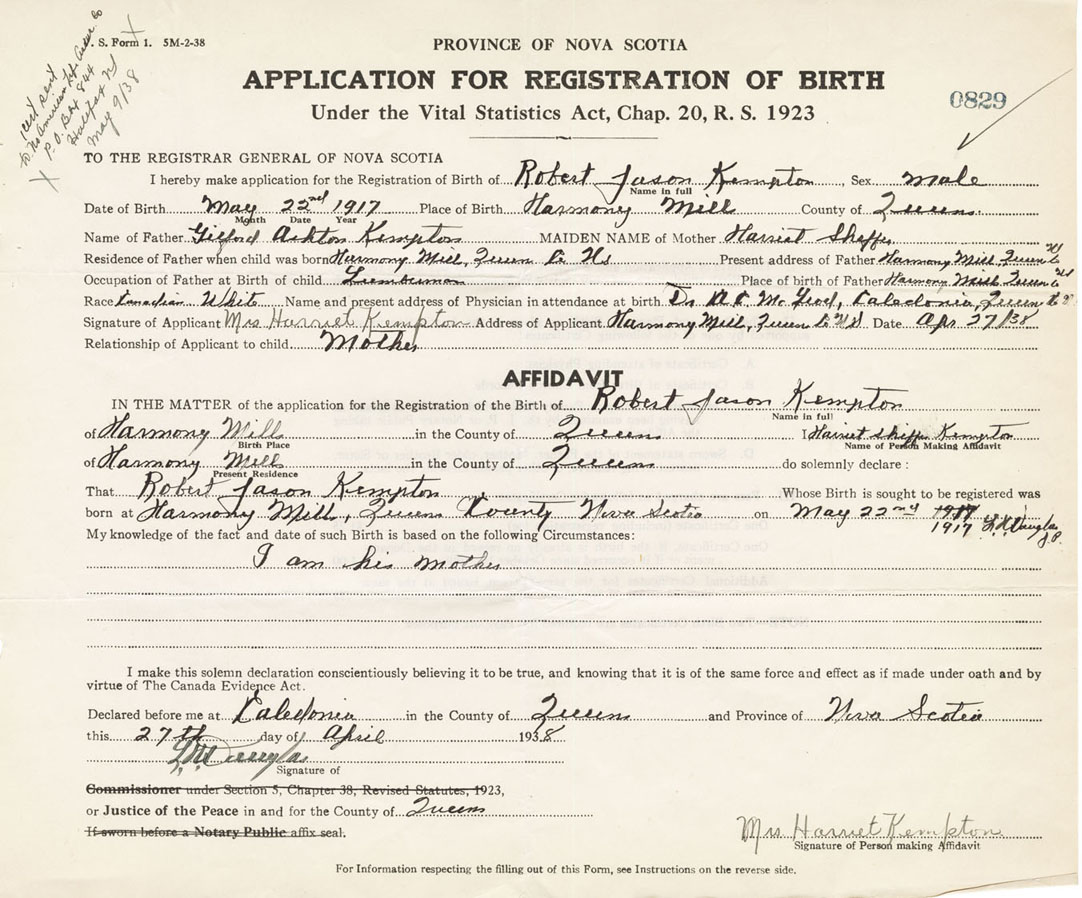 V. S. Form 1. 5M-2-38
cert sent
to No American Life Assur. Co
P.O. Box 844
Halifax NS
May 9/38
PROVINCE OF NOVA SCOTIA
APPLICATION FOR REGISTRATION OF BIRTH
Under the Vital Statistics Act, Chap. 20, R. S. 1923
0829
TO THE REGISTRAR GENERAL OF NOVA SCOTIA
I hereby make application for the Registration of Birth of Robert Jason Kempton, Sex male
Name in full
Date of Birth May 22nd 1917 Place of Birth Harmony Mill County of Queens
Month Date Year
Name of Father Gilford Ashton Kempton MAIDEN NAME of Mother Harriet Sheffer
Residence of Father when child was born Harmony Mill, Queen Co NS Present address of Father Harmony Mill Queen Co NS
Occupation of Father at Birth of child Lumberman Place of birth of Father Harmony Mill Queen Co
Race Canadian White Name and present address of Physician in attendance at birth Dr Caledonia, Queen Co
Signature of Applicant Mrs Harriet Kempton Address of Applicant Harmony Mill, Queen Co NS Date Apr 27/38
Relationship of Applicant to child Mother
AFFIDAVIT
IN THE MATTER of the application for the Registration of the Birth of Robert Jason Kempton
Name in full
of Harmony Mills in the County of Queens I Harriet Sheffer Kempton
Birth Place Name of Person Making Affidavit
of Harmony Mills in the County of Queens do solemnly declare :
Present Residence
That Robert Jason Kempton Whose Birth is sought to be registered was
born at Harmony Mill, Queens County Nova Scotia on May 22nd 1917
1917 Douglas J.P.
My knowledge of the fact and date of such Birth is based on the following Circumstances:
I am his mother
I make this solemn declaration conscientiously believing it to be true, and knowing that it is of the same force and effect as if made under oath and by
virtue of The Canada Evidence Act.
Declared before me at Caledonia in the County of Queens and Province of Nova Scotia
this 27th day of April 1938
Douglas
Signature of
Commissioner under Section 5, Chapter 38, Revised Statutes, 1923,
or Justice of the Peace in and for the County of Queens
If sworn before a Notary Public affix seal.
Mrs Harriet Kempton
Signature of Person making Affidavit
For Information respecting the filling out of this Form, see Instructions on the reverse side.